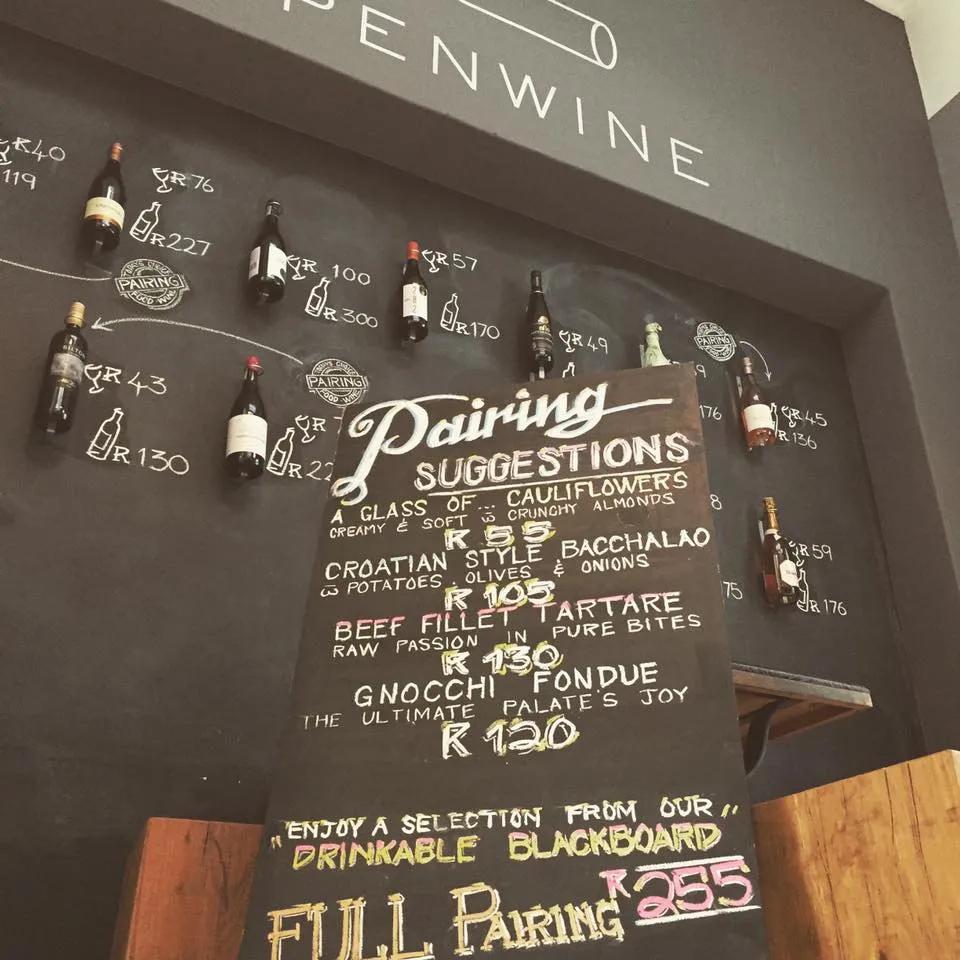 PENWINE
R40
119
R76
R227
R100
R300
R57
R170
R49
TODAY'S CHOICE
PAIRING
FOOD·WINE
PAIRING
R43
R130
R
R22
PAIRING
FOOD·WINE
9
176
R45
R136
R59
R176
75
Pairing
SUGGESTIONS
A GLASS OF... CAULIFLOWERS
CREAMY & SOFT W CRUNCHY ALMONDS
R 55
CROATIAN STYLE BACCHALAO
W POTATOES, OLIVES & ONIONS
R 105
BEEF FILLET TARTARE
RAW PASSION IN PURE BITES
R 130
GNOCCHI FONDUE
THE ULTIMATE PALATE'S JOY
R 120
"ENJOY A SELECTION FROM OUR"
"DRINKABLE BLACKBOARD
FULL PAIRING R255